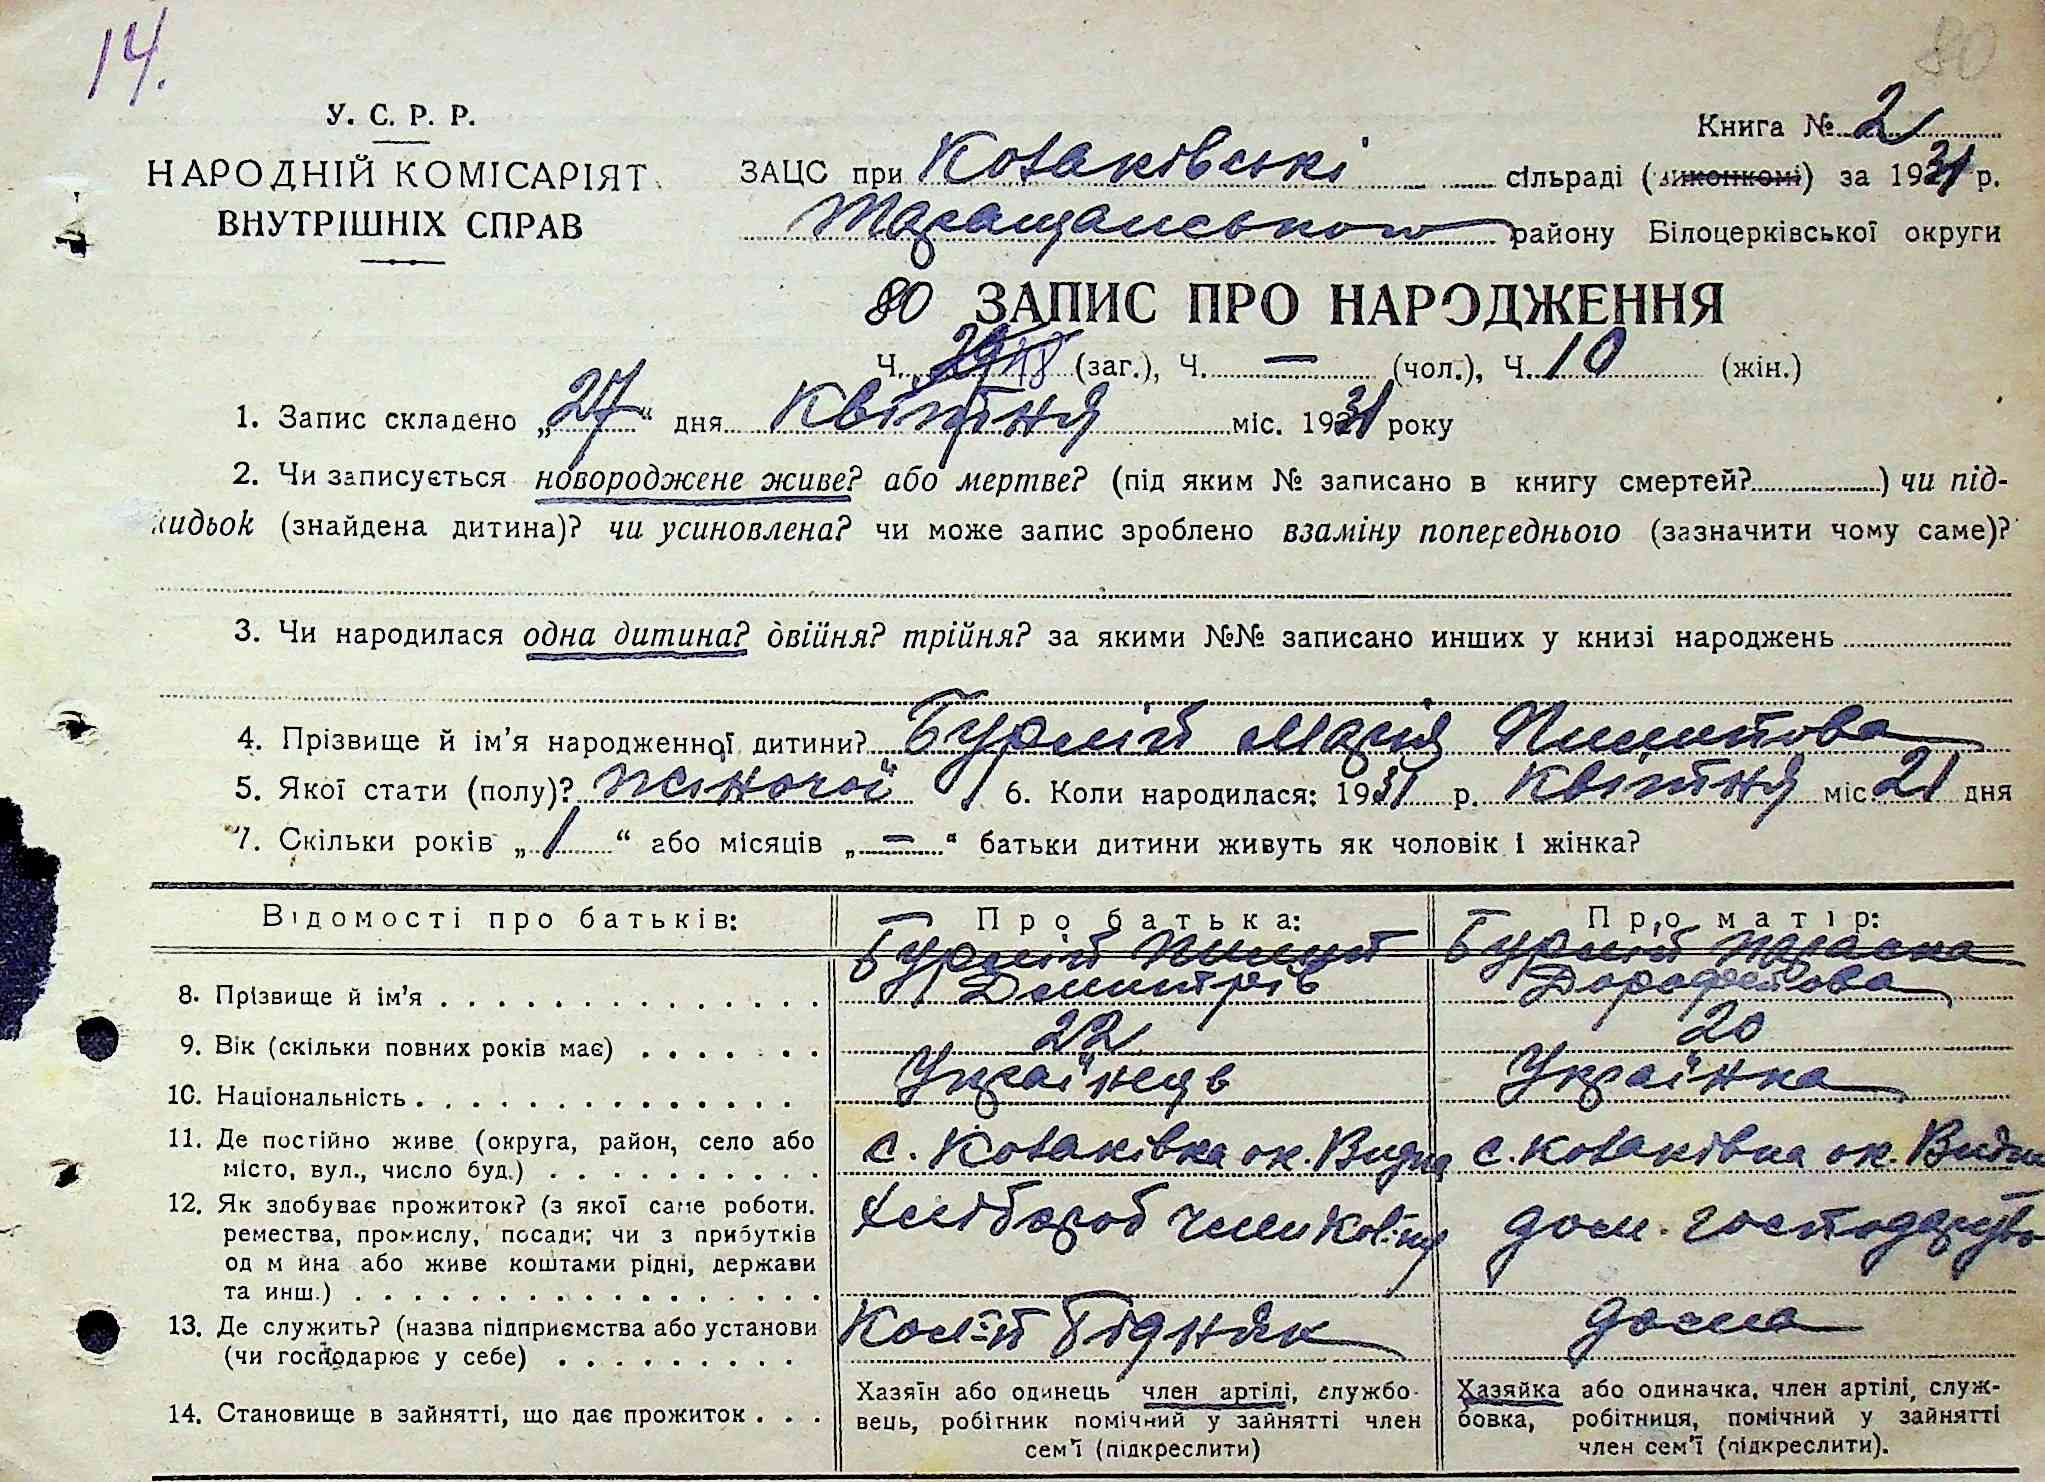 14.
80
У. С. Р. Р.
НАРОДНІЙ КОМІСАРІЯТ
ВНУТРІШНІХ СПРАВ
Книга № 2
ЗАЦС при Козаківські сільраді (виконкомі) за 1931 р.
Таращанського району Білоцерківської округи
80 ЗАПИС ПРО НАРОДЖЕННЯ
Ч. 29 18 (заг.), Ч. — (чол.), Ч. 10 (жін.)
1. Запис складено „27“ дня Квітня міс. 1931 року
2. Чи записується новороджене живе? або мертве? (під яким № записано в книгу смертей?) чи під-
кидьок (знайдена дитина)? чи усиновлена? чи може запис зроблено взаміну попереднього (зазначити чому саме)?
3. Чи народилася одна дитина? двійня? трійня? за якими №№ записано инших у книзі народжень
4. Прізвище й ім'я народженної дитини? Бурлій Марія Пилипова
5. Якої стати (полу)? жіночої 6. Коли народилася: 1931 р. Квітня міс. 21 дня
7. Скільки років „1“ або місяців „—“ батьки дитини живуть як чоловік і жінка?
Відомості про батьків: Про батька: Про матір:
Бурлій Пилип Бурлій
8. Прізвище й ім'я Дмитрів Дорофеева
9. Вік (скільки повних років має) 22 20
10. Національність Українець Українка
11. Де постійно живе (округа, район, село або с. Козаківка ок. с. Козаківка ок.
місто, вул., число буд.)
12. Як здобуває прожиток? (з якої саме роботи. Хлібороб член дом. господарство
ремества, промислу, посади; чи з прибутків
од м йна або живе коштами рідні, держави
та инш.)
13. Де служить? (назва підприємства або установи Бідняк дома
(чи господарює у себе)
14. Становище в зайнятті, що дає прожиток
Хазяїн або одинець член артілі, службо-
вець, робітник помічний у зайнятті член
сем'ї (підкреслити)
Хазяйка або одиначка, член артілі, служ-
бовка, робітниця, помічний у зайнятті
член сем'ї (підкреслити).